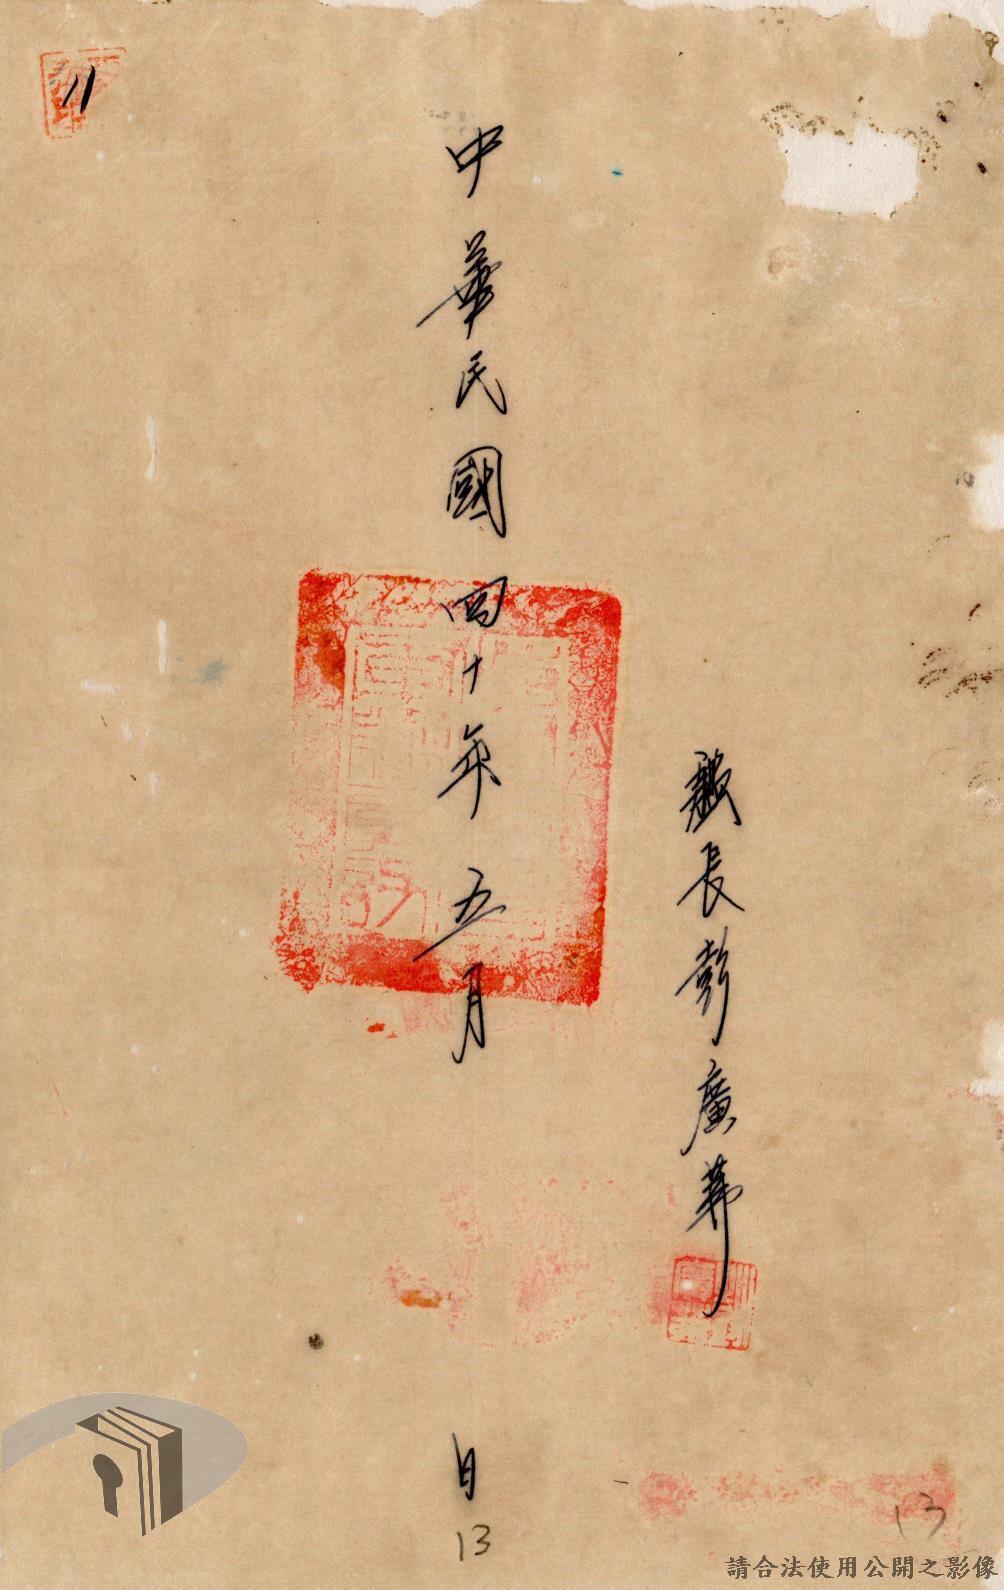 縣長彭廣華
中華民國四十年五月 日
11
13
13
請合法使用公開之影像